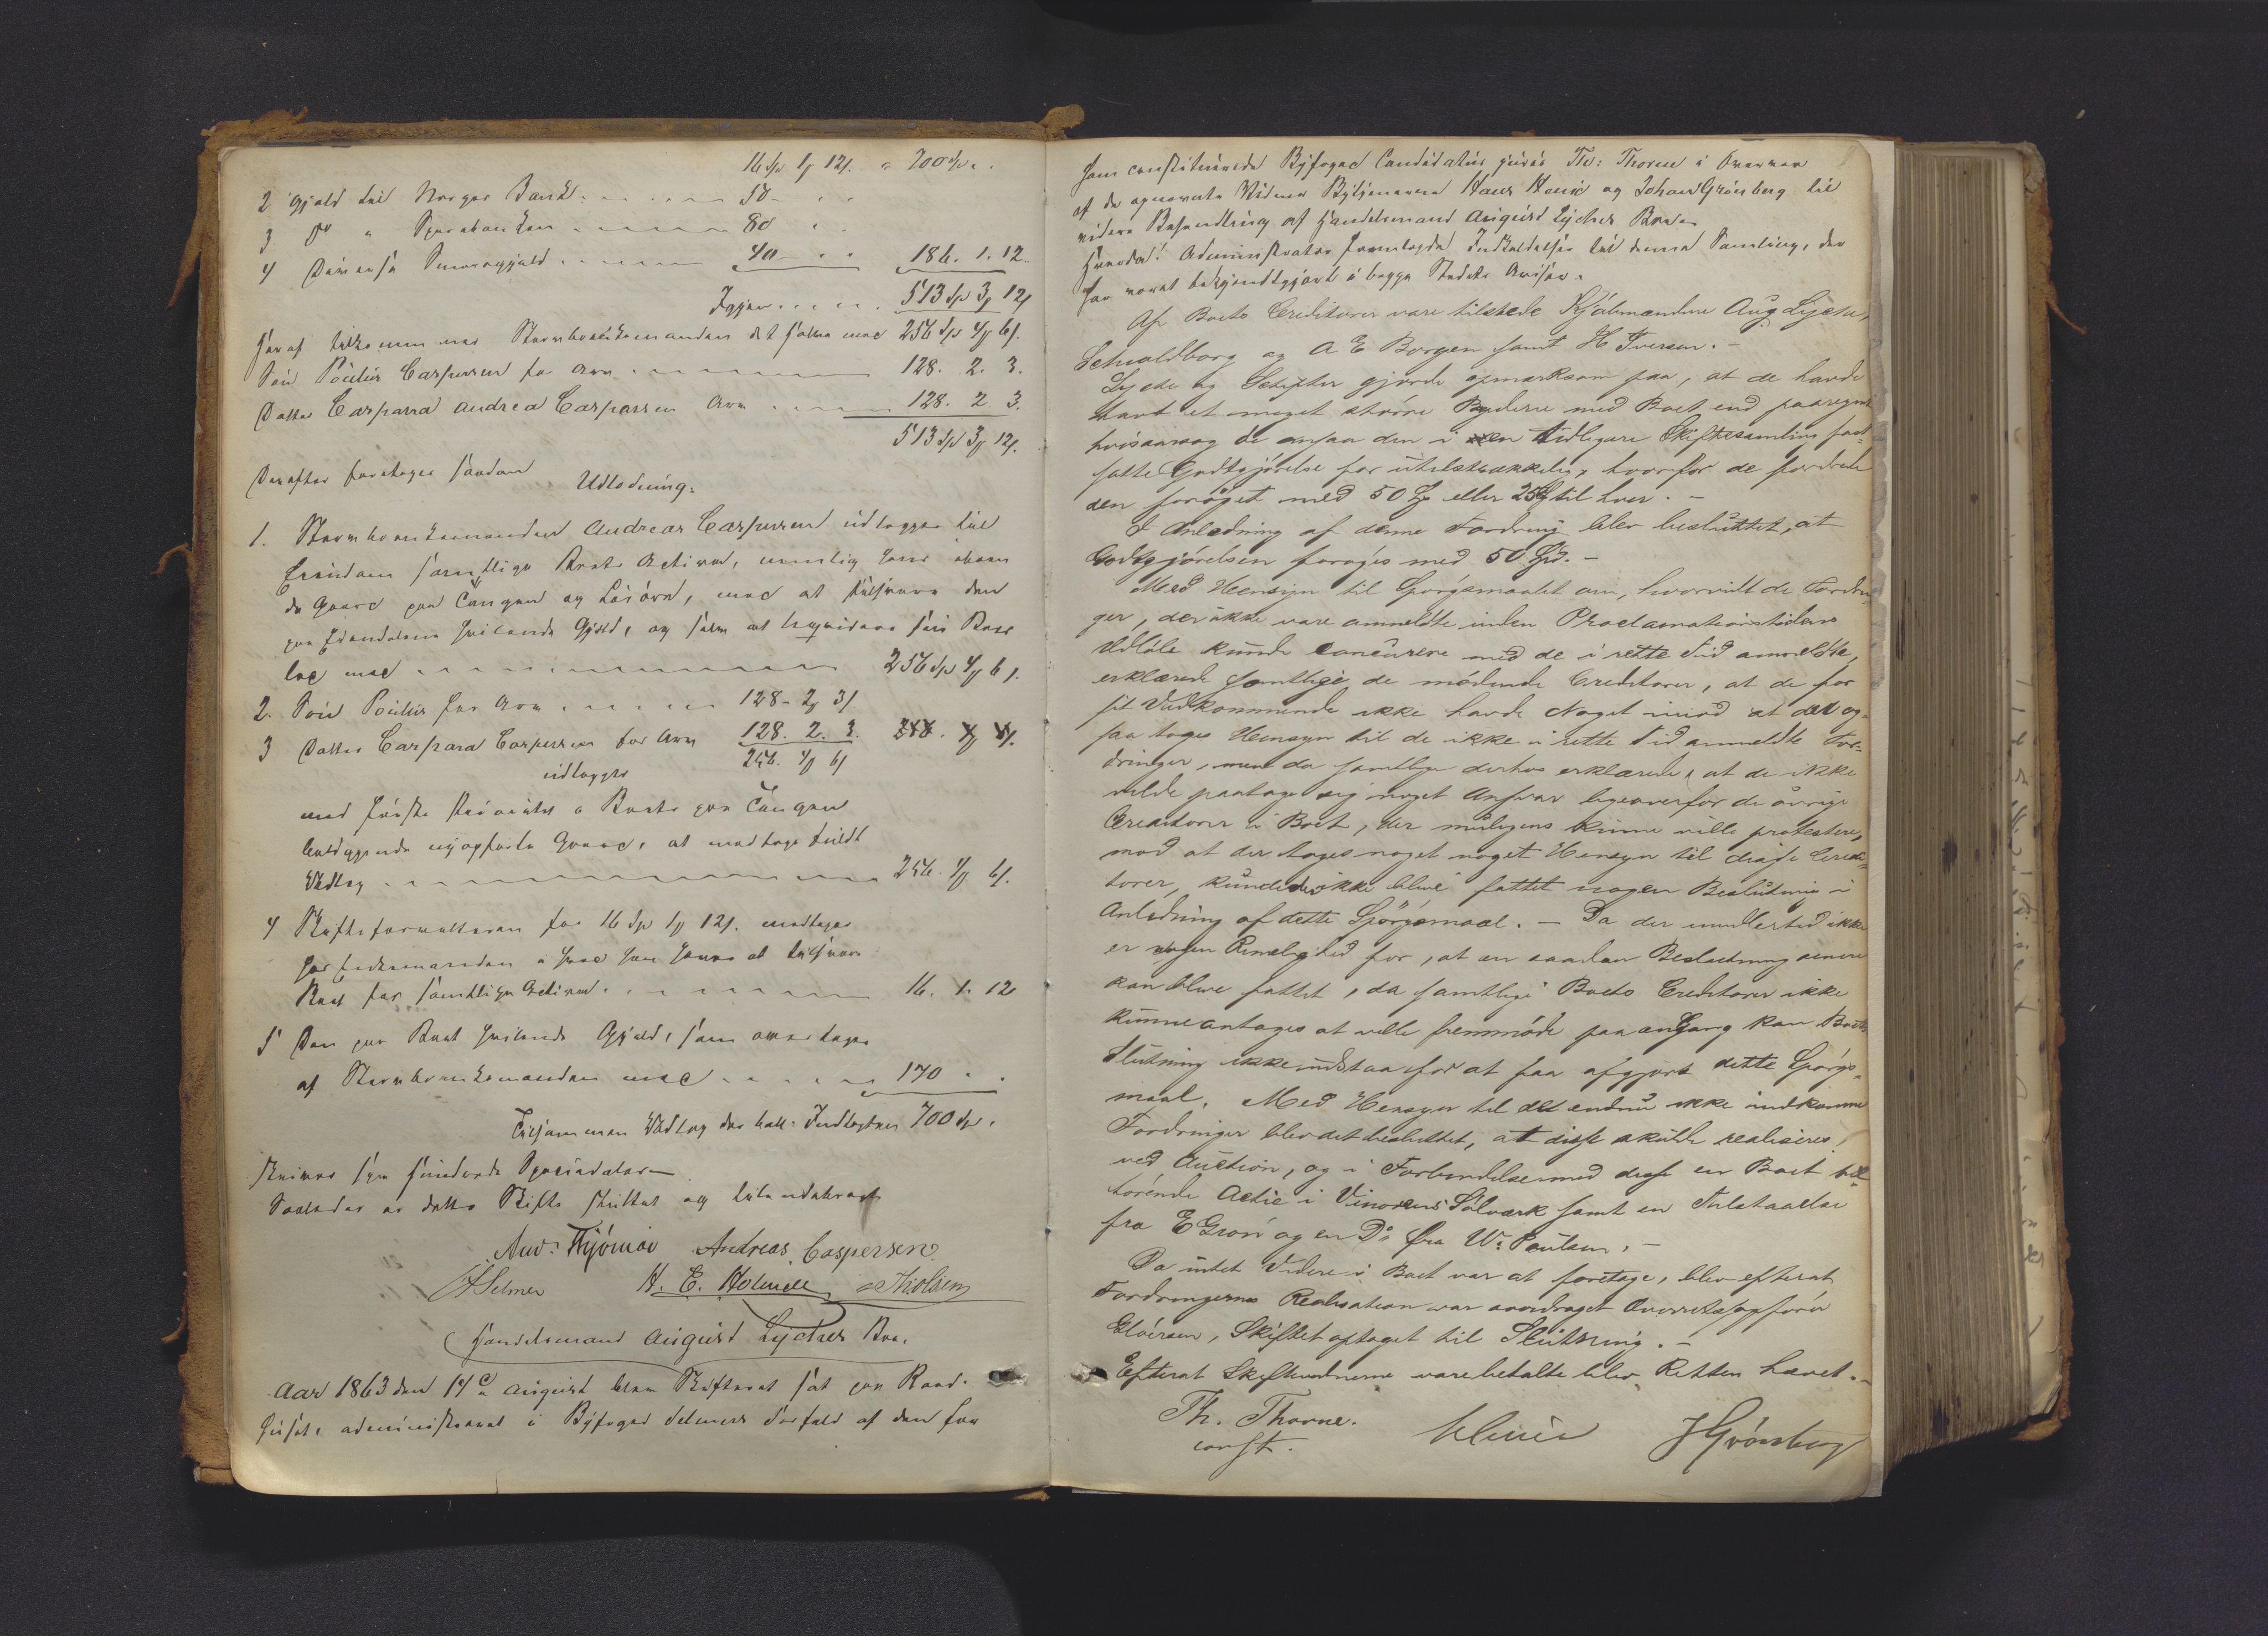 16 Sp 1 12 s. " 700 Sp. "
2 Gjæld til Norges Bank 50 " "
3 Do " Sparebanken 80 " "
4 Diverse Smaagjæld 40 " " 186. 1. 12.
Igjen 513 Sp 3 12 s
heraf tilkommer Stervboenkemanden det halve med 256 Sp 4 6 s.
Søn Paulus Caspersen for Arv 128. 2. 3.
Datter Caspara Andrea Caspersen Arv 128. 2 3.
513 Sp 3 12 s.
Derefter foretoges saadan
Udlodning.
1. Stervboenkemanden Andreas Caspersen udlægges til
Eiendom samtlige Boets Activa, nemlig hans iboen-
de Gaard paa Tangen og Løsøre, mod at tilsvare den
paa Eiendommen hvilende Gjæld, og som at liqvidere sin Boes
lod med 256 Sp 4 6 s.
2. Søn Paulus for Arv 128 - 2 3 s
3 Datter Caspara Caspersen for Arv 128. 2. 3. 256. 4 6 s.
256. 4 6 s
udlægges
med første Prioritet i Boets paa Tangen
beliggende nyopførte Gaard, at modtage fuldt
Udlæg 256. 4 6 s.
4 Skifteforvalteren for 16 Sp 1 12 s. modtages
hos Enkemanden i hvad han haver at tilsvare
Boet for samtlige Activa. 16. 1. 12
5 Den paa Boet hvilende Gjæld, som overtages
af Stervboenkemanden med 170 " "
Tilsammen Udlæg der ball: Indtægten 700 Sp.
skriver syv hundrede Speciedaler
Saaledes er dette Skifte sluttet og tilendebragt
And: Thjömøe Andreas Caspersen
Selmer H. C. Holmell Nielsen
Handelsmand August Lyches Bo.
Aar 1863 den 14de August blev Skifteret sat paa Raad-
huset, administreret i Byfoged Selmers Forfald af den for
ham constituerede Byfoged Candidatus juris Th: Thorne i Overvær
af de opnævnte Vidner Bytjenerne Hans Henie og Johan Grönberg til
videre Behandling af Handelsmand August Lyches Bo.
Hvorda! Administrator fremlagde Indkaldelse til denne Samling, der
har været bekjendtgjort i begge Stedets Aviser.
Af Boets Creditorer vare tilstede Kjöbmændene Aug Lyche,
Schwaldborg og A E Borgen samt H Iversen. -
Lyche og Schixter gjorde opmærksom paa, at de havde
havt et meget större Byderie med Boet end paaregnet
hvisaarsag de ansaa den i en tidligere Skiftesamling fast-
satte Godtgjörelse for utilstrækkelig, hvorfor de fordrede
den foröget med 50 Spd eller 25 Spd til hver. -
I Anledning af denne Fordring blev besluttet, at
Godtgjörelsen foröges med 50 Spd. -
Med Hensyn til Spörgsmaalet om, hvorvidt de Fordrin-
ger, der ikke vare anmeldte inden Proclamationstidens
Udlöb kunde concurere med de i rette Tid anmeldte,
erklærede samtlige de mödende Creditorer, at de for
sit Vedkommende ikke havde Noget imod at det og-
saa toges Hensyn til de ikke i rette Tid anmeldte For-
dringer, men da samtlige derhos erklærede, at de ikke
vilde paatage sig noget Ansvar ligeoverfor de övrige
Creditorer i Boet, der muligens kunne ville protestere,
mod at der toges noget noget Hensyn til disse Credi-
torer, kunde der ikke blive fattet nogen Beslutning i
Anledning af dette Spörgsmaal. - Da der imidlertid ikke
er nogen Rimelighed for, at en saadan Beslutning senere
kan blive fattet, da samtlige Boets Creditorer ikke
kunne antages at ville fremmöde paa en Gang kan Boets
Slutning ikke udstaa for at faa afgjort dette Spörgs-
maal. Med Hensyn til det endnu ikke indkomne
Fordringer blev det besluttet, at disse skulle realiseres
ved Auction, og i Forbindelse med disse en Boet til-
hörende Actie i Vinorens Sölvverk samt en Tilstaaelse
fra E Grön og en Do fra W. Poulsen. -
Da intet Videre i Boet var at foretage, blev efterat
Fordringernes Realisation var overdraget Overretssagförer
Elvirsen, Skiftet optaget til Slutning. -
Efterat Skiftevidnerne vare betalte blev Retten hævet. -
Th. Thorne.
const.
Henie
J Grönberg